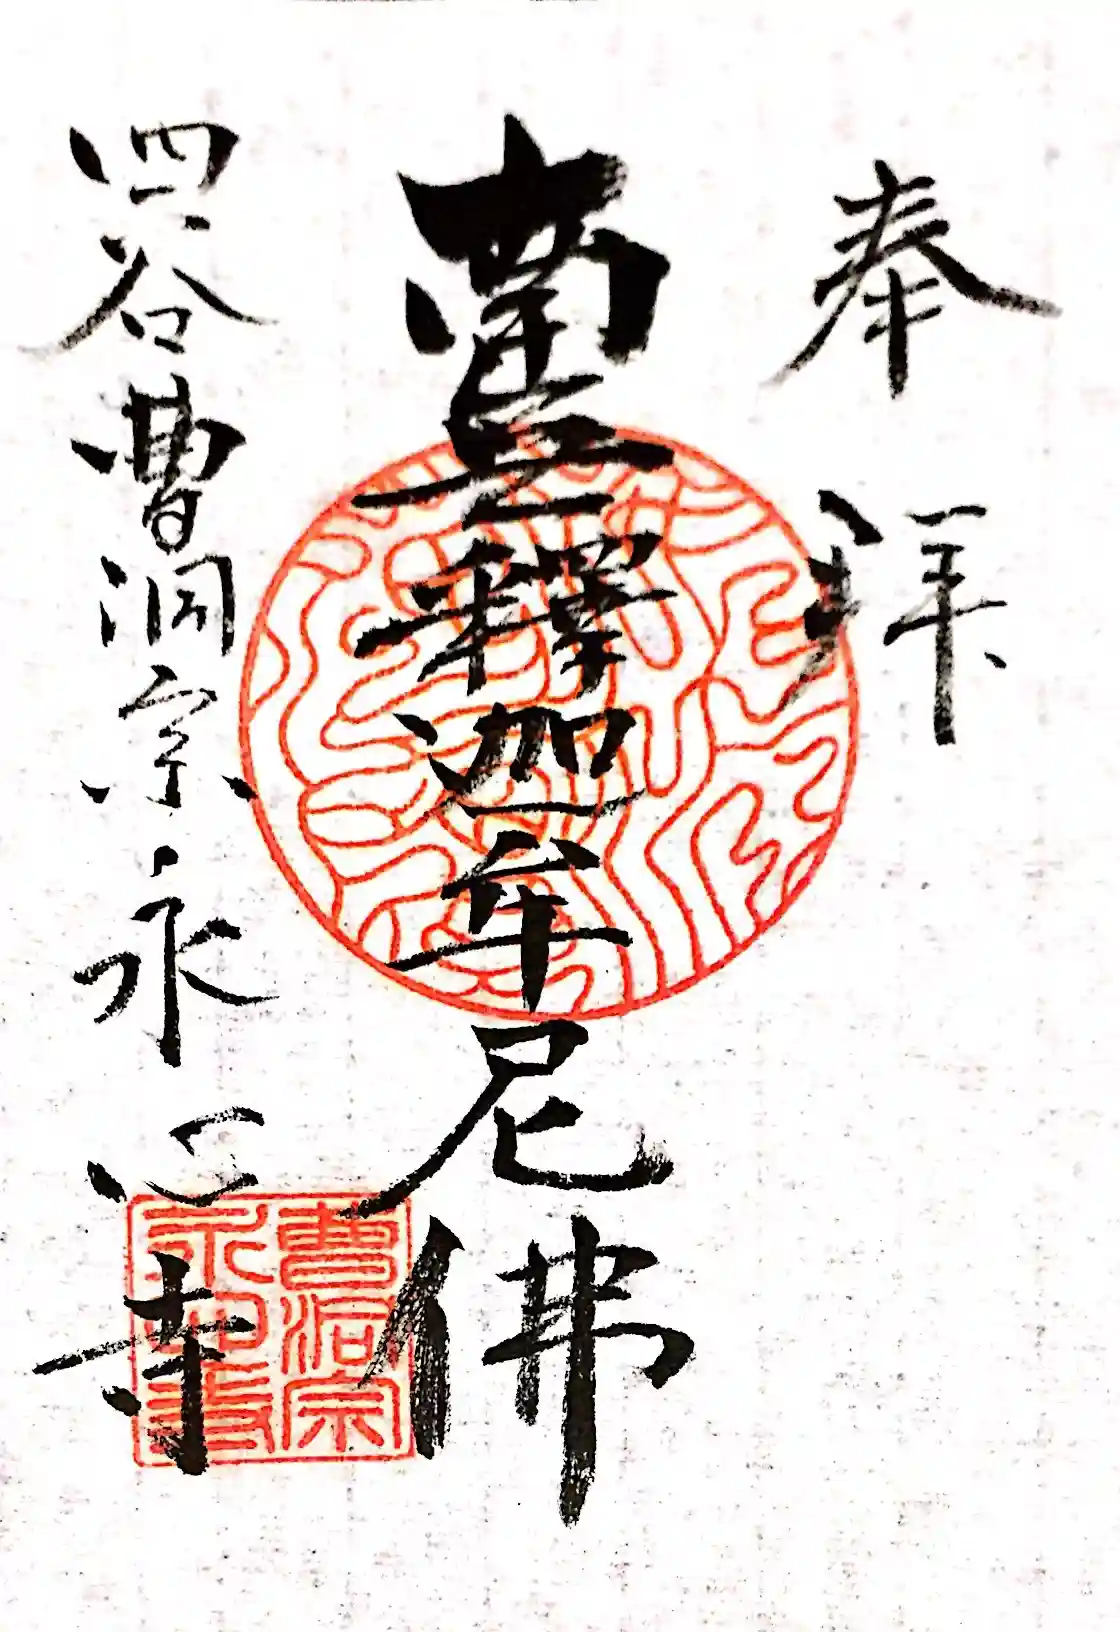 奉拝
南無釋迦牟尼佛
四谷曹洞宗永心寺
曹洞宗
永心寺